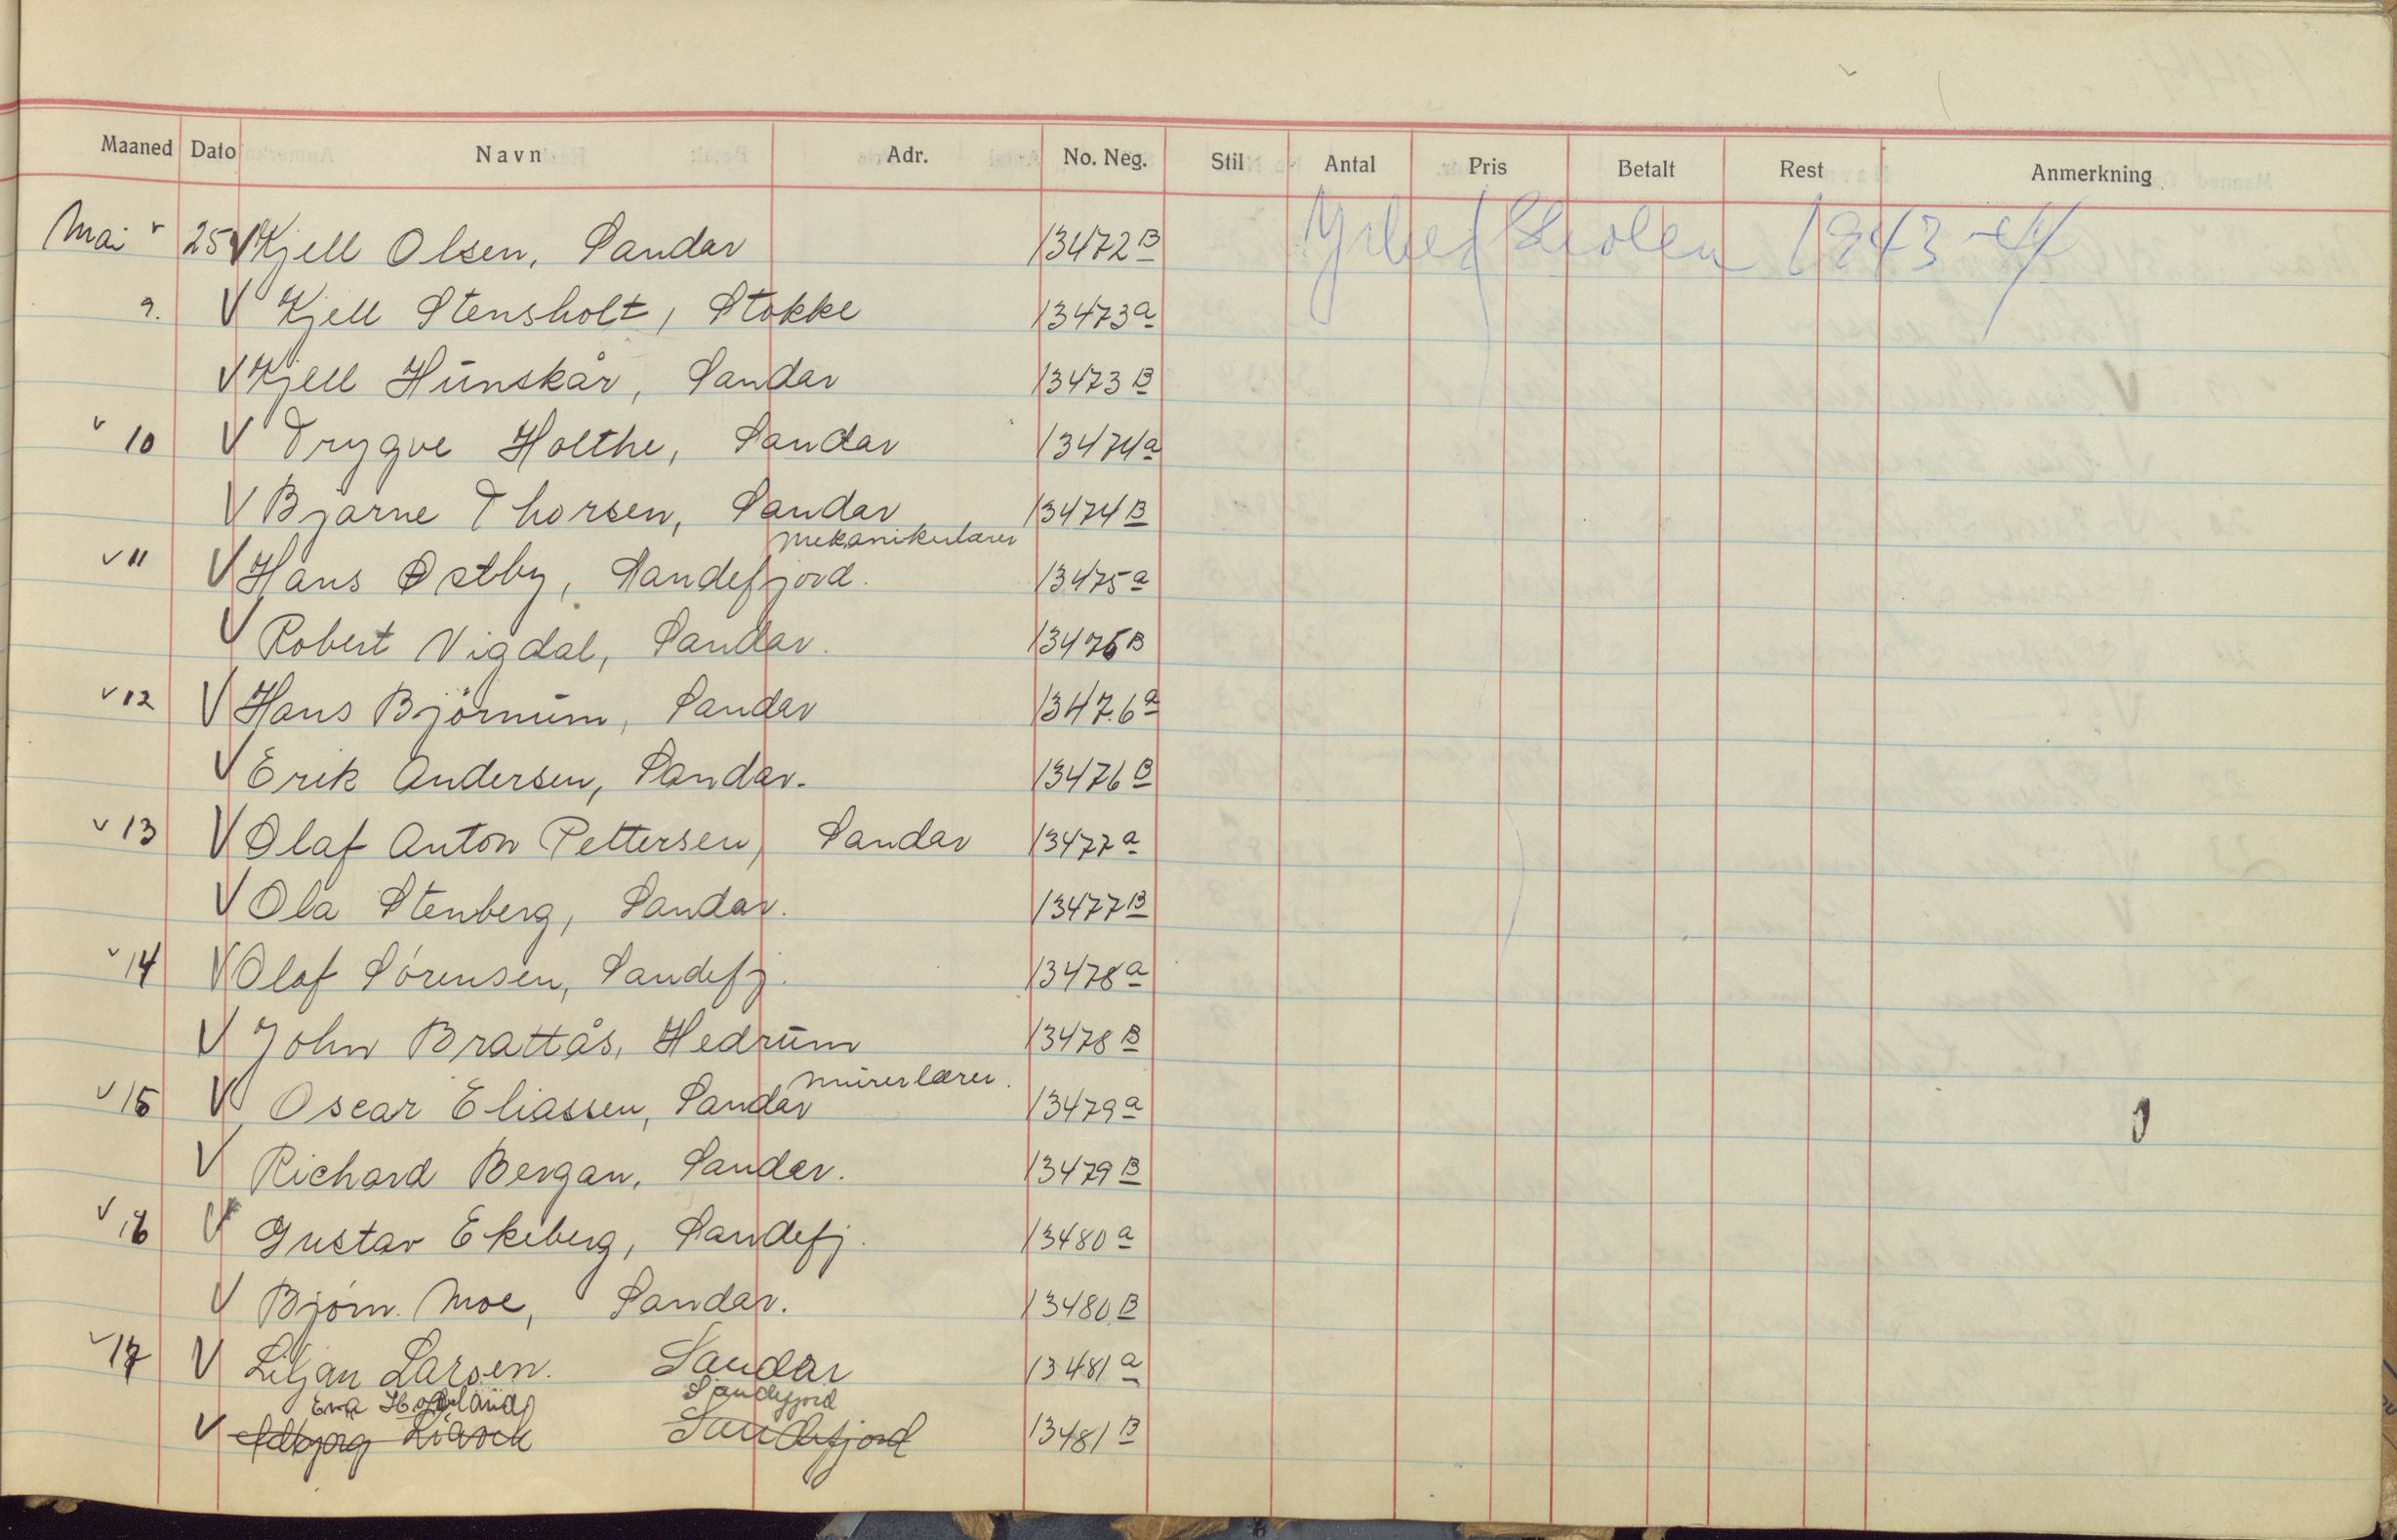 Maaned Dato Navn Adr. No. Neg. Stil Antal Pris Betalt Rest Anmerkning
Mai 25 V Kjell Olsen, Sandar 13472 B Yrkesskolen 1943-44
9. V Kjell Stensholt, Stokke 13473 a
V Kjell Hunskår, Sandar 13473 B
v 10 V Trygve Holthe, Sandar 13474 a
V Bjarne Thorsen, Sandar 13474 B
mekanikerlærer
v 11 V Hans Østby, Sandefjord. 13475 a
V Robert Vigdal, Sandar. 13475 B
v 12 V Hans Björnum, Sandar 1347.6 a
V Erik Andersen, Sandar. 13476 B
v 13 V Olaf Anton Pettersen, Sandar 13477 a
V Ola Stenberg, Sandar. 13477 B
v 14 V Olaf Sörensen, Sandefj. 13478 a
V John Brattås, Hedrum 13478 B
murerlærer.
v 15 V Oscar Eliassen, Sandar 13479 a
V Richard Bergan, Sandar. 13479 B
v 16 V Gustav Ekeberg, Sandefj. 13480 a
V Björn Moe, Sandar. 13480 B
v 17 V Liljan Larsen. Sandar 13481 a
Eva Sandefjord
V Sandefjord 13481 B